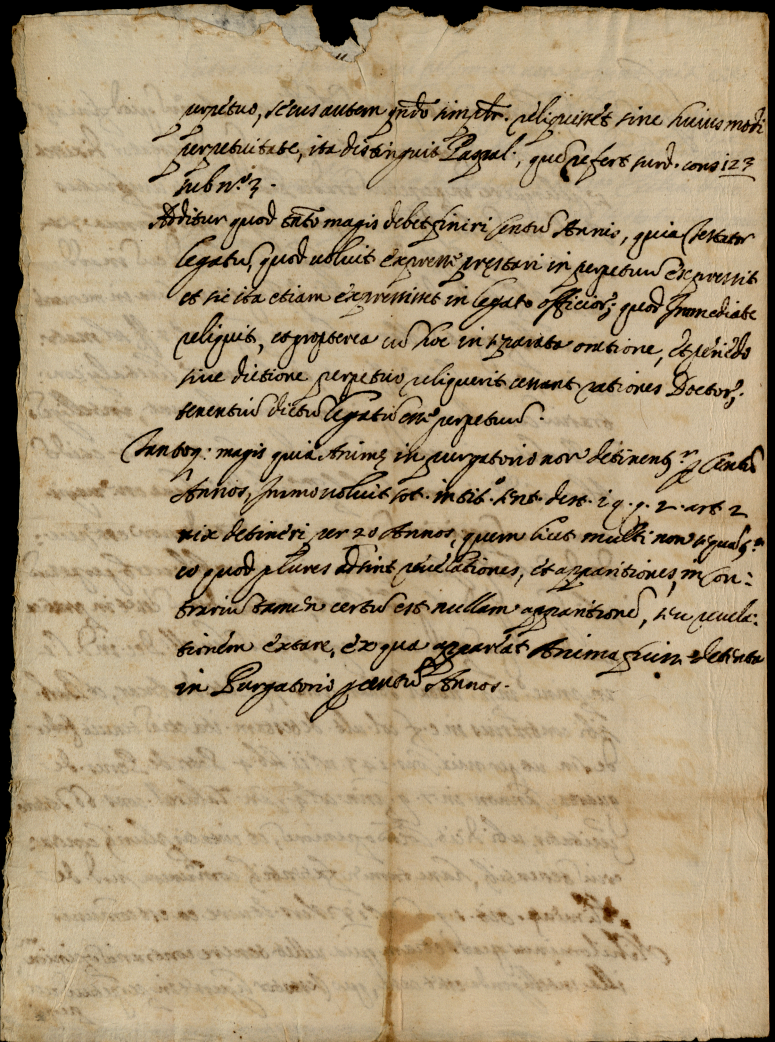 perpetuo, secus autem qn̄do simplr. reliquisset sine huiusmodi
perpetuitate, ita distinguit Paschal., quē refert surd. cons 123
sub n.º 3.
Additur quod tāto magis debet finiri Centū Annis, quia Testator
legatū, quod voluit expresse prestari in perpetuū expressit
et sic ita etiam expressisset in legato officiorꝫ quod Immediate
reliquit, et propterea cū hoc in separata oratione, et
sine dictione perpetuo reliquerit cessant rationes Doctorꝫ
tenentiū dictū legatū esse perpetuū.
Tantoq: magis quia Animę in purgatorio non detinentʳ p Centū
Annos, Immo voluit sot. in sent. dist. 19. q. 2. art 2
vix detineri per 20 Annos, quem licet multi non sequātʳ
eo quod plures adsint revelationes, et apparitiones, in con:
trariū tamen certū est nullam apparitionē, seu revela:
tionem extare, ex qua appareat Anima fuisse detenta
in Purgatorio p centū Annos.